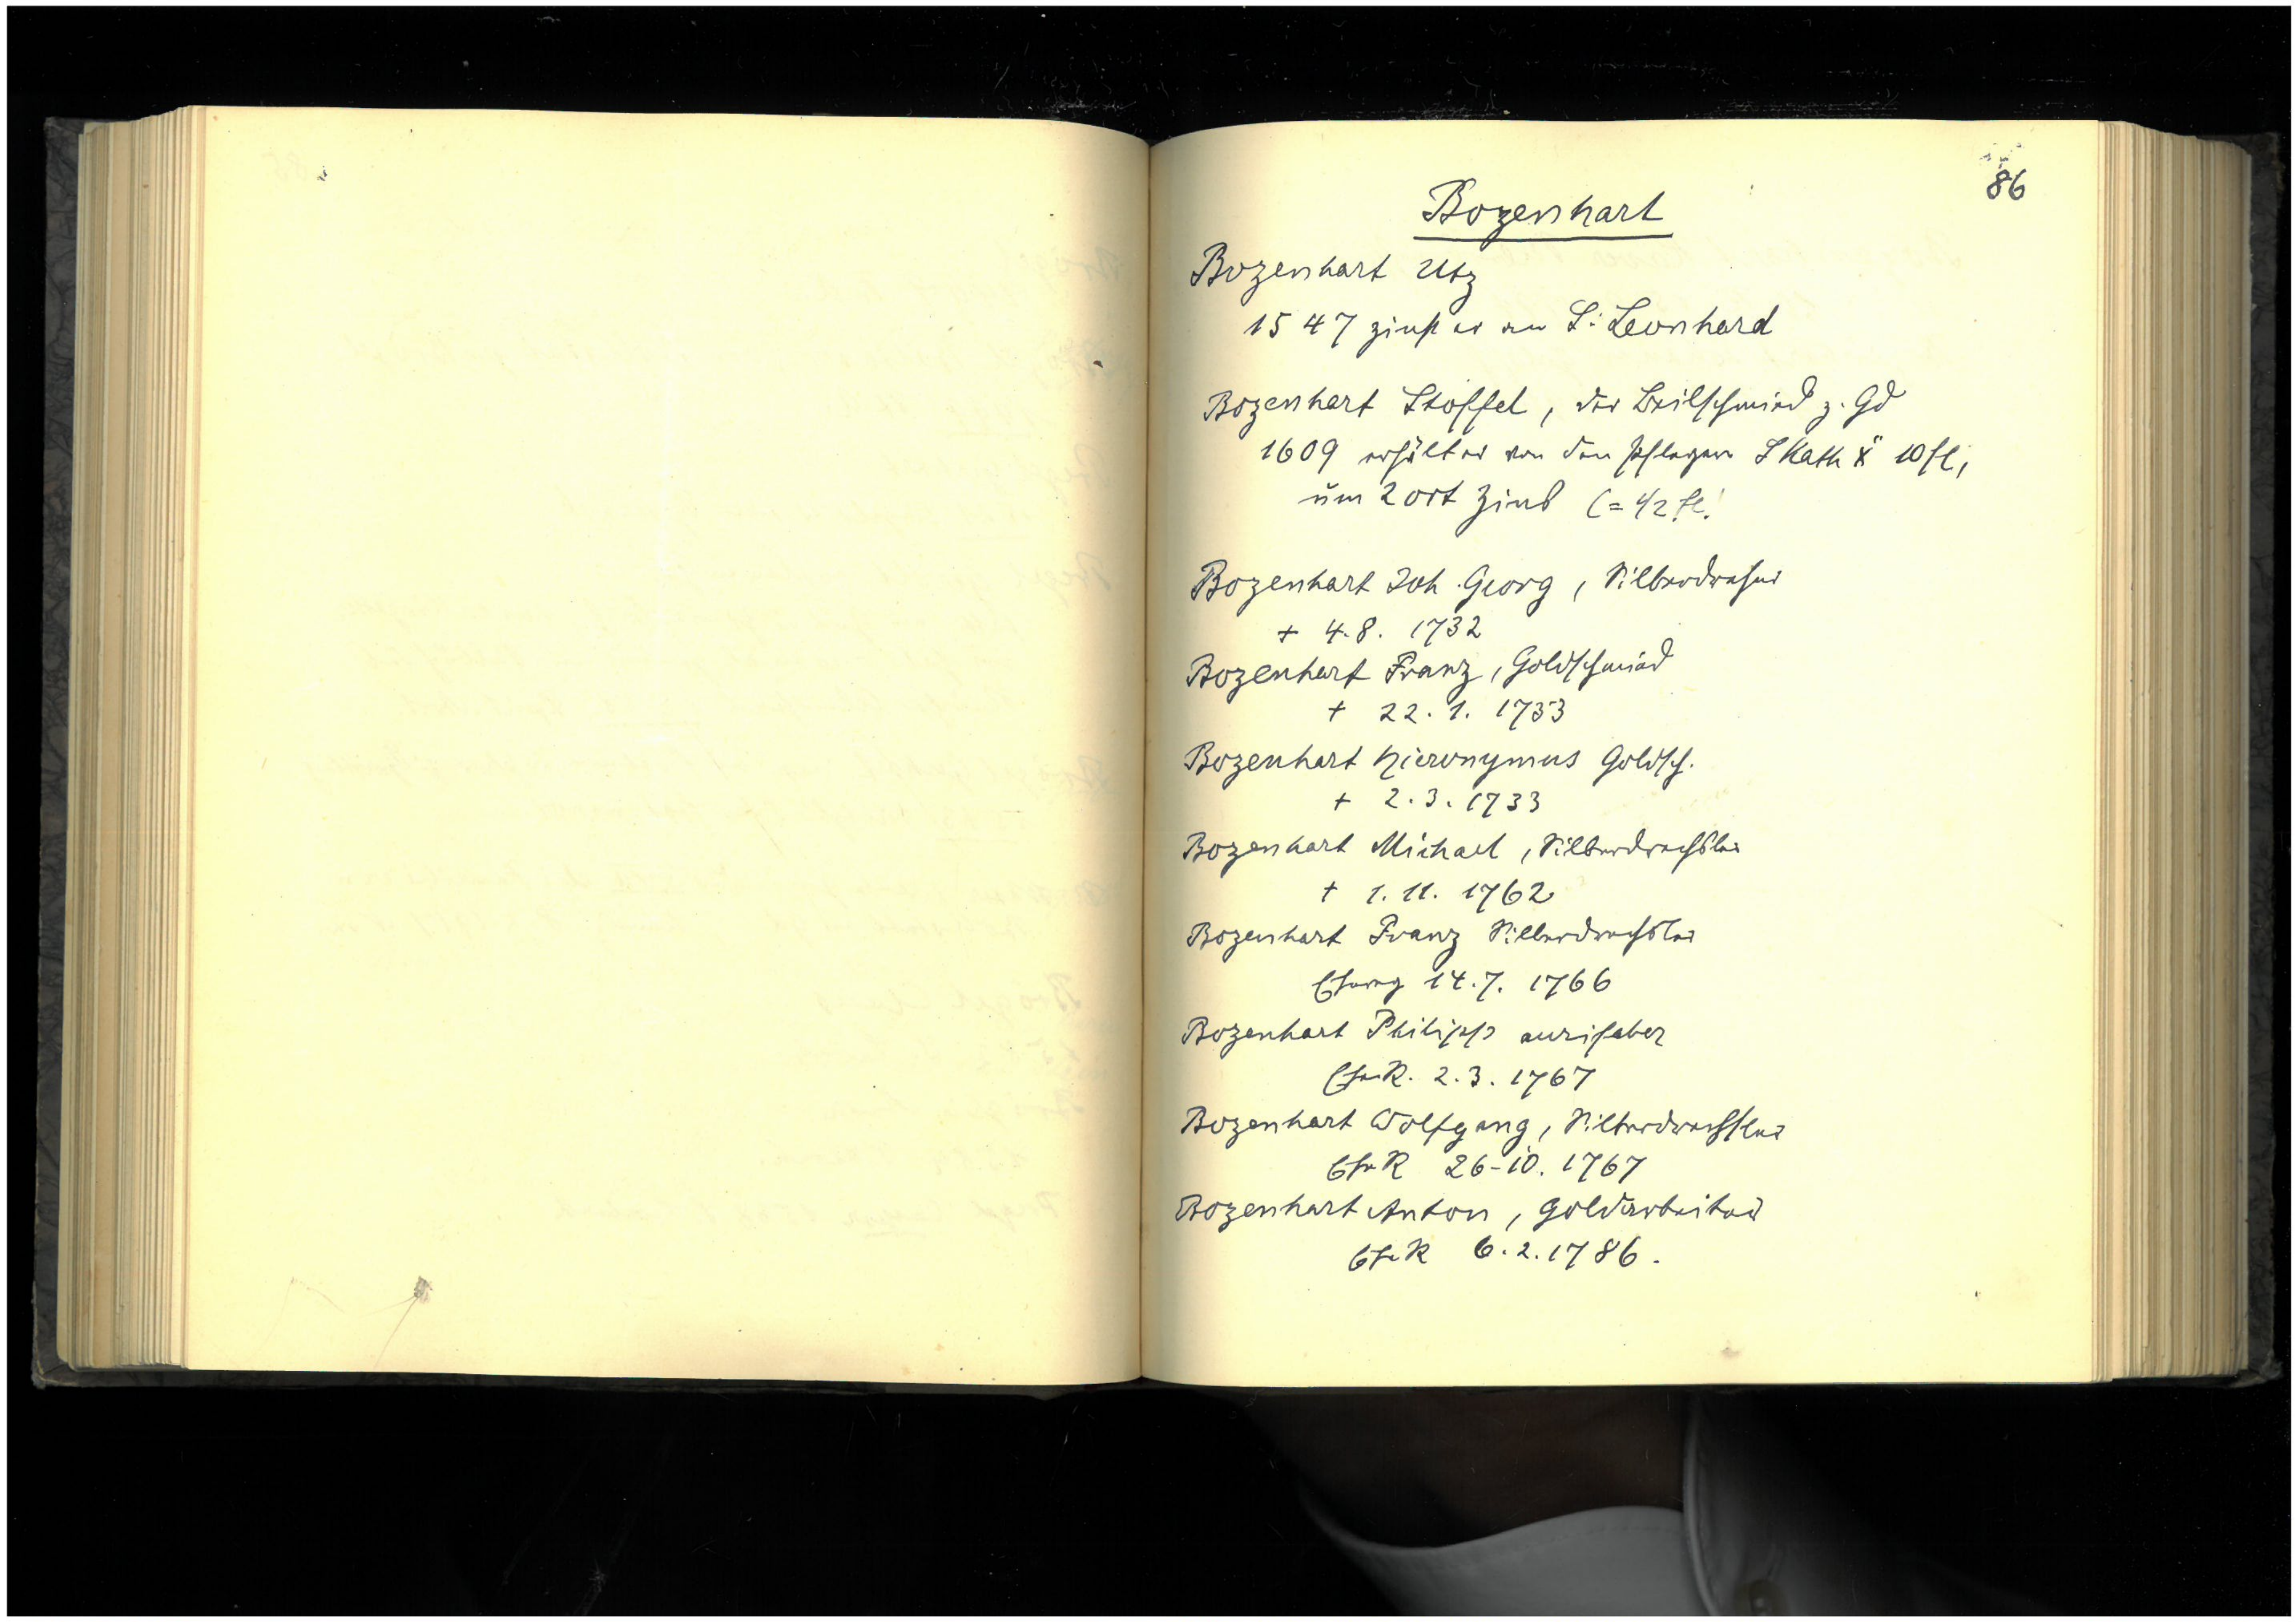 86
Bozenhart
Bozenhart Utz
1547 zinst er an S: Leonhard
Bozenhart Stoffel, der Beilschmied z. Gd
1609 erhält er von den Pflegern S Kath 10 fl,
um 2 ort Zins (= 1/2 fl!
Bozenhart Joh. Georg, Silberdreher
+ 4.8. 1732
Bozenhart Franz, Goldschmied
+ 22. 1. 1733
Bozenhart Hieronymus Goldsch.
+ 2.3. 1733
Bozenhart Michael, Silberdrechsler
+ 1. 11. 1762
Bozenhart Franz Silberdrechsler
14.7. 1766
Bozenhart Philipp aurifaber
2.3. 1767
Bozenhart Wolfgang, Silberdrechsler
26-10. 1767
Bozenhart Anton, Goldarbeiter
6.2.1786.